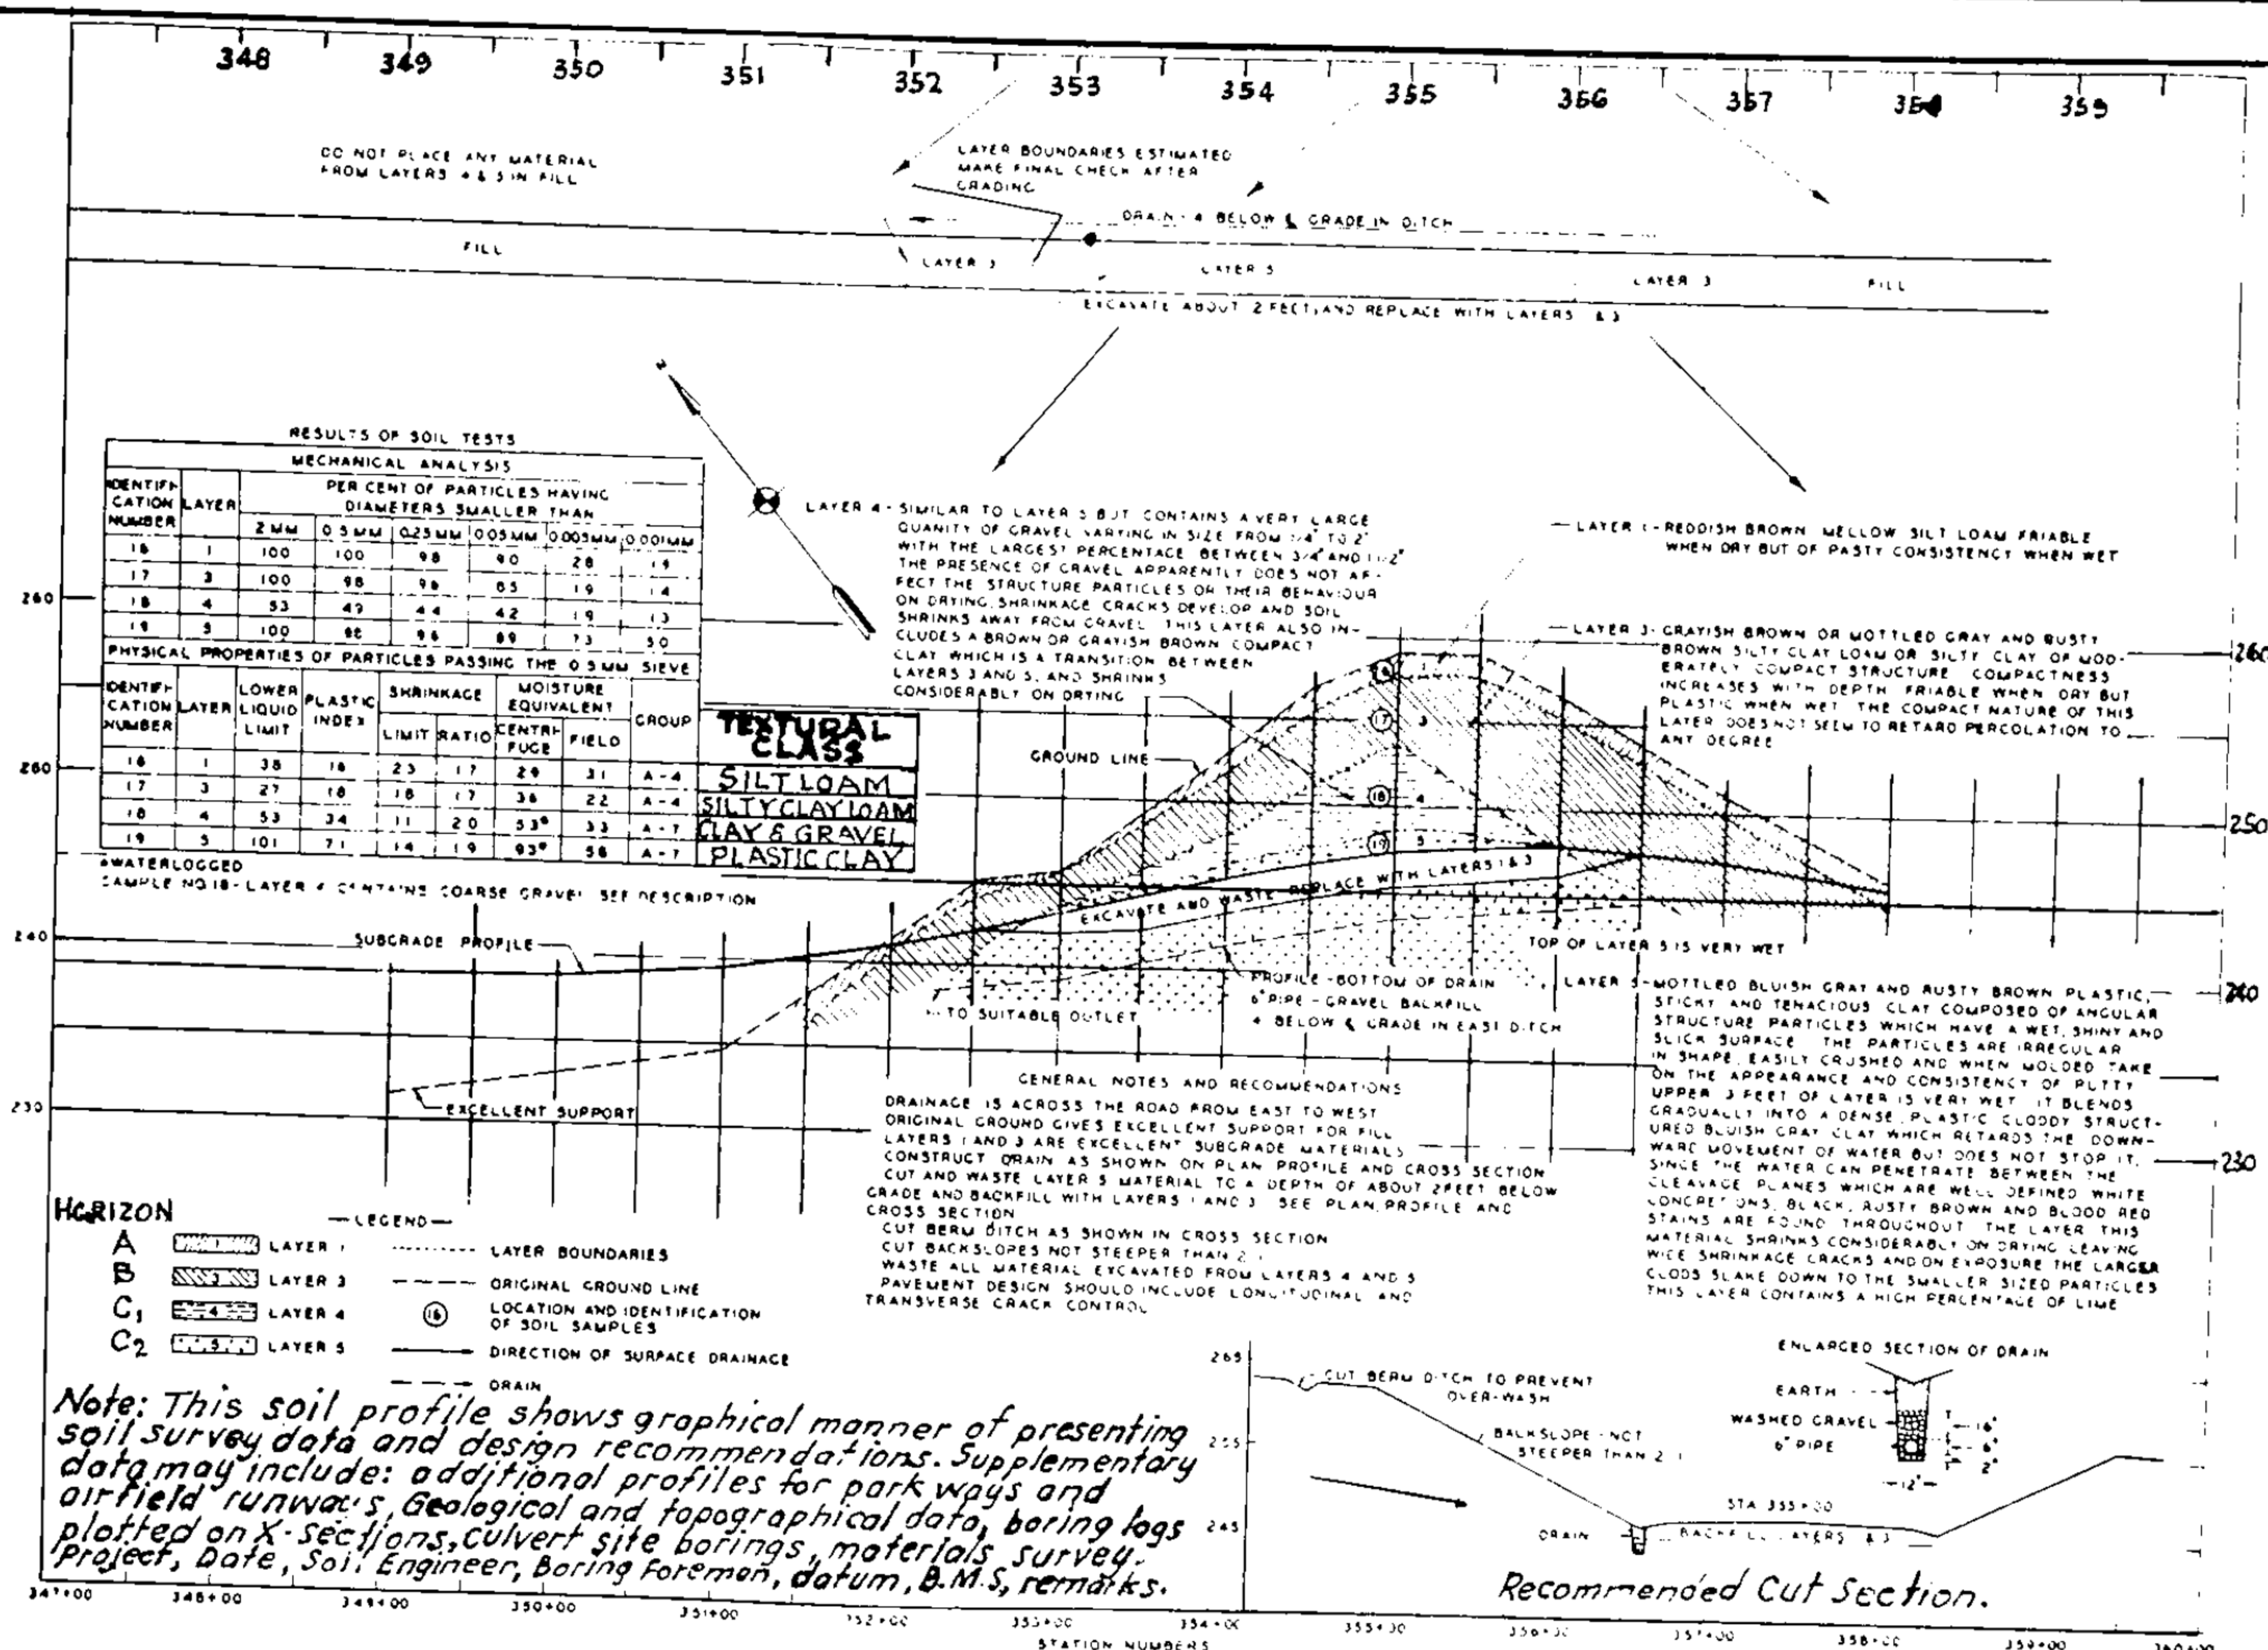 348 349 350 351 352 353 354 355 356 357 359
DO NOT PLACE ANY MATERIAL
FROM LAYERS 4 & 5 IN FILL
LAYER BOUNDARIES ESTIMATED
MAKE FINAL CHECK AFTER
GRADING
DRAIN - 4 BELOW ℄ GRADE IN DITCH
FILL
LAYER 3
LAYER 5
LAYER 3
FILL
EXCAVATE ABOUT 2 FEET, AND REPLACE WITH LAYERS & 3
N
RESULTS OF SOIL TESTS
MECHANICAL ANALYSIS
IDENTIFI-
CATION
NUMBER
LAYER
PER CENT OF PARTICLES HAVING
DIAMETERS SMALLER THAN
2 MM 0.5 MM 0.25 MM 0.05 MM 0.005 MM 0.001 MM
16 1 100 100 98 90 28 19
17 3 100 98 96 85 19 14
18 4 53 49 44 42 19 13
19 5 100 98 96 89 73 50
PHYSICAL PROPERTIES OF PARTICLES PASSING THE 0.5 MM SIEVE
IDENTIFI-
CATION
NUMBER
LAYER
LOWER
LIQUID
LIMIT
PLASTIC
INDEX
SHRINKAGE
LIMIT RATIO
MOISTURE
EQUIVALENT
CENTRI-
FUGE
FIELD
GROUP
TEXTURAL
CLASS
16 1 38 16 23 1.7 29 31 A-4 SILT LOAM
17 3 27 18 18 1.7 36 22 A-4 SILTY CLAY LOAM
18 4 53 34 11 2.0 53* 33 A-7 CLAY & GRAVEL
19 5 101 71 14 1.9 93* 56 A-7 PLASTIC CLAY
*WATERLOGGED
SAMPLE NO 18 - LAYER 4 CONTAINS COARSE GRAVEL SEE DESCRIPTION
LAYER 4 - SIMILAR TO LAYER 5 BUT CONTAINS A VERY LARGE
QUANITY OF GRAVEL VARYING IN SIZE FROM 1/4" TO 2"
WITH THE LARGEST PERCENTAGE BETWEEN 3/4" AND 1 1/2"
THE PRESENCE OF GRAVEL APPARENTLY DOES NOT AF-
FECT THE STRUCTURE PARTICLES OR THEIR BEHAVIOUR
ON DRYING, SHRINKAGE CRACKS DEVELOP AND SOIL
SHRINKS AWAY FROM GRAVEL THIS LAYER ALSO IN-
CLUDES A BROWN OR GRAYISH BROWN COMPACT
CLAY WHICH IS A TRANSITION BETWEEN
LAYERS 3 AND 5, AND SHRINKS
CONSIDERABLY ON DRYING
LAYER 1 - REDDISH BROWN MELLOW SILT LOAM FRIABLE
WHEN DRY BUT OF PASTY CONSISTENCY WHEN WET
LAYER 3 - GRAYISH BROWN OR MOTTLED GRAY AND RUSTY
BROWN SILTY CLAY LOAM OR SILTY CLAY OF MOD-
ERATELY COMPACT STRUCTURE COMPACTNESS
INCREASES WITH DEPTH FRIABLE WHEN DRY BUT
PLASTIC WHEN WET THE COMPACT NATURE OF THIS
LAYER DOES NOT SEEM TO RETARD PERCOLATION TO
ANY DEGREE
260
260
240
230
260
250
240
230
GROUND LINE
17 3
18 4
19 5
EXCAVATE AND WASTE REPLACE WITH LAYERS 1 & 3
SUBGRADE PROFILE
TOP OF LAYER 5 IS VERY WET
PROFILE - BOTTOM OF DRAIN
6" PIPE - GRAVEL BACKFILL
4 BELOW ℄ GRADE IN EAST DITCH
TO SUITABLE OUTLET
EXCELLENT SUPPORT
LAYER 5 - MOTTLED BLUISH GRAY AND RUSTY BROWN PLASTIC,
STICKY AND TENACIOUS CLAY COMPOSED OF ANGULAR
STRUCTURE PARTICLES WHICH HAVE A WET, SHINY AND
SLICK SURFACE THE PARTICLES ARE IRREGULAR
IN SHAPE, EASILY CRUSHED AND WHEN MOLDED TAKE
ON THE APPEARANCE AND CONSISTENCY OF PUTTY
UPPER 3 FEET OF LAYER IS VERY WET IT BLENDS
GRADUALLY INTO A DENSE, PLASTIC CLODDY STRUCT-
URED BLUISH GRAY CLAY WHICH RETARDS THE DOWN-
WARD MOVEMENT OF WATER BUT DOES NOT STOP IT,
SINCE THE WATER CAN PENETRATE BETWEEN THE
CLEAVAGE PLANES WHICH ARE WELL DEFINED WHITE
CONCRETIONS, BLACK, RUSTY BROWN AND BLOOD RED
STAINS ARE FOUND THROUGHOUT THE LAYER THIS
MATERIAL SHRINKS CONSIDERABLY ON DRYING LEAVING
WIDE SHRINKAGE CRACKS AND ON EXPOSURE THE LARGER
CLODS SLAKE DOWN TO THE SMALLER SIZED PARTICLES
THIS LAYER CONTAINS A HIGH PERCENTAGE OF LIME
GENERAL NOTES AND RECOMMENDATIONS
DRAINAGE IS ACROSS THE ROAD FROM EAST TO WEST
ORIGINAL GROUND GIVES EXCELLENT SUPPORT FOR FILL
LAYERS 1 AND 3 ARE EXCELLENT SUBGRADE MATERIALS
CONSTRUCT DRAIN AS SHOWN ON PLAN PROFILE AND CROSS SECTION
CUT AND WASTE LAYER 5 MATERIAL TO A DEPTH OF ABOUT 2 FEET BELOW
GRADE AND BACKFILL WITH LAYERS 1 AND 3 SEE PLAN, PROFILE AND
CROSS SECTION
CUT BERM DITCH AS SHOWN IN CROSS SECTION
CUT BACKSLOPES NOT STEEPER THAN 2:1
WASTE ALL MATERIAL EXCAVATED FROM LAYERS 4 AND 5
PAVEMENT DESIGN SHOULD INCLUDE LONGITUDINAL AND
TRANSVERSE CRACK CONTROL
HORIZON
LEGEND
A LAYER 1
B LAYER 3
C1 4 LAYER 4
C2 5 LAYER 5
LAYER BOUNDARIES
ORIGINAL GROUND LINE
16 LOCATION AND IDENTIFICATION
OF SOIL SAMPLES
DIRECTION OF SURFACE DRAINAGE
DRAIN
Note: This soil profile shows graphical manner of presenting
soil survey data and design recommendations. Supplementary
data may include: additional profiles for park ways and
airfield runways, Geological and topographical data, boring logs
plotted on X-sections, culvert site borings, materials survey.
Project, Date, Soil Engineer, Boring Foreman, datum, B.M.S, remarks.
265
255
245
CUT BERM DITCH TO PREVENT
OVER-WASH
BACKSLOPE - NOT
STEEPER THAN 2:1
STA 355+00
DRAIN
BACKFILL LAYERS & 3
ENLARGED SECTION OF DRAIN
EARTH
WASHED GRAVEL
6" PIPE
16"
6"
2"
12"
Recommended Cut Section.
347+00 348+00 349+00 350+00 351+00 352+00 353+00 354+00 355+00 356+00 357+00 358+00 359+00 360+00
STATION NUMBERS